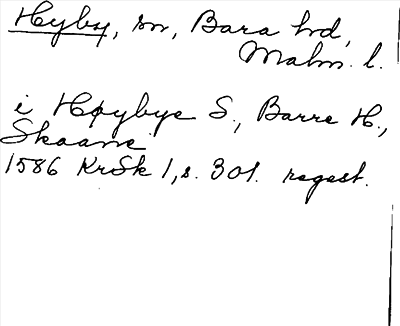 Hyby, sn, Bara hd,
Malm. l.
i Høybye S., Barre H.,
Skaane
1586 KrSk 1, s. 301. regest.